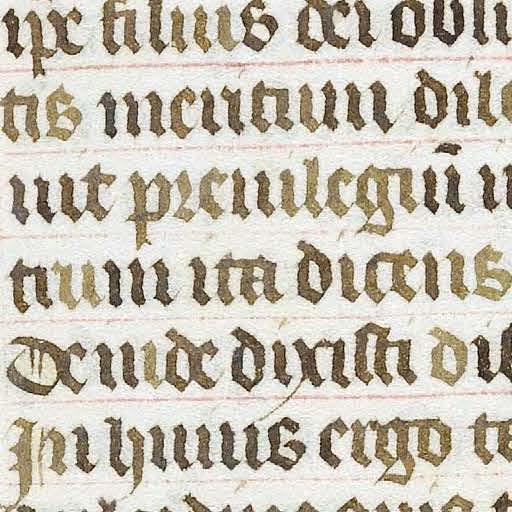 ipe filius dei obli
tis mentium dile
uit preuilegiū u
tium ita dicens
De inde dixisti di
In huius ergo te